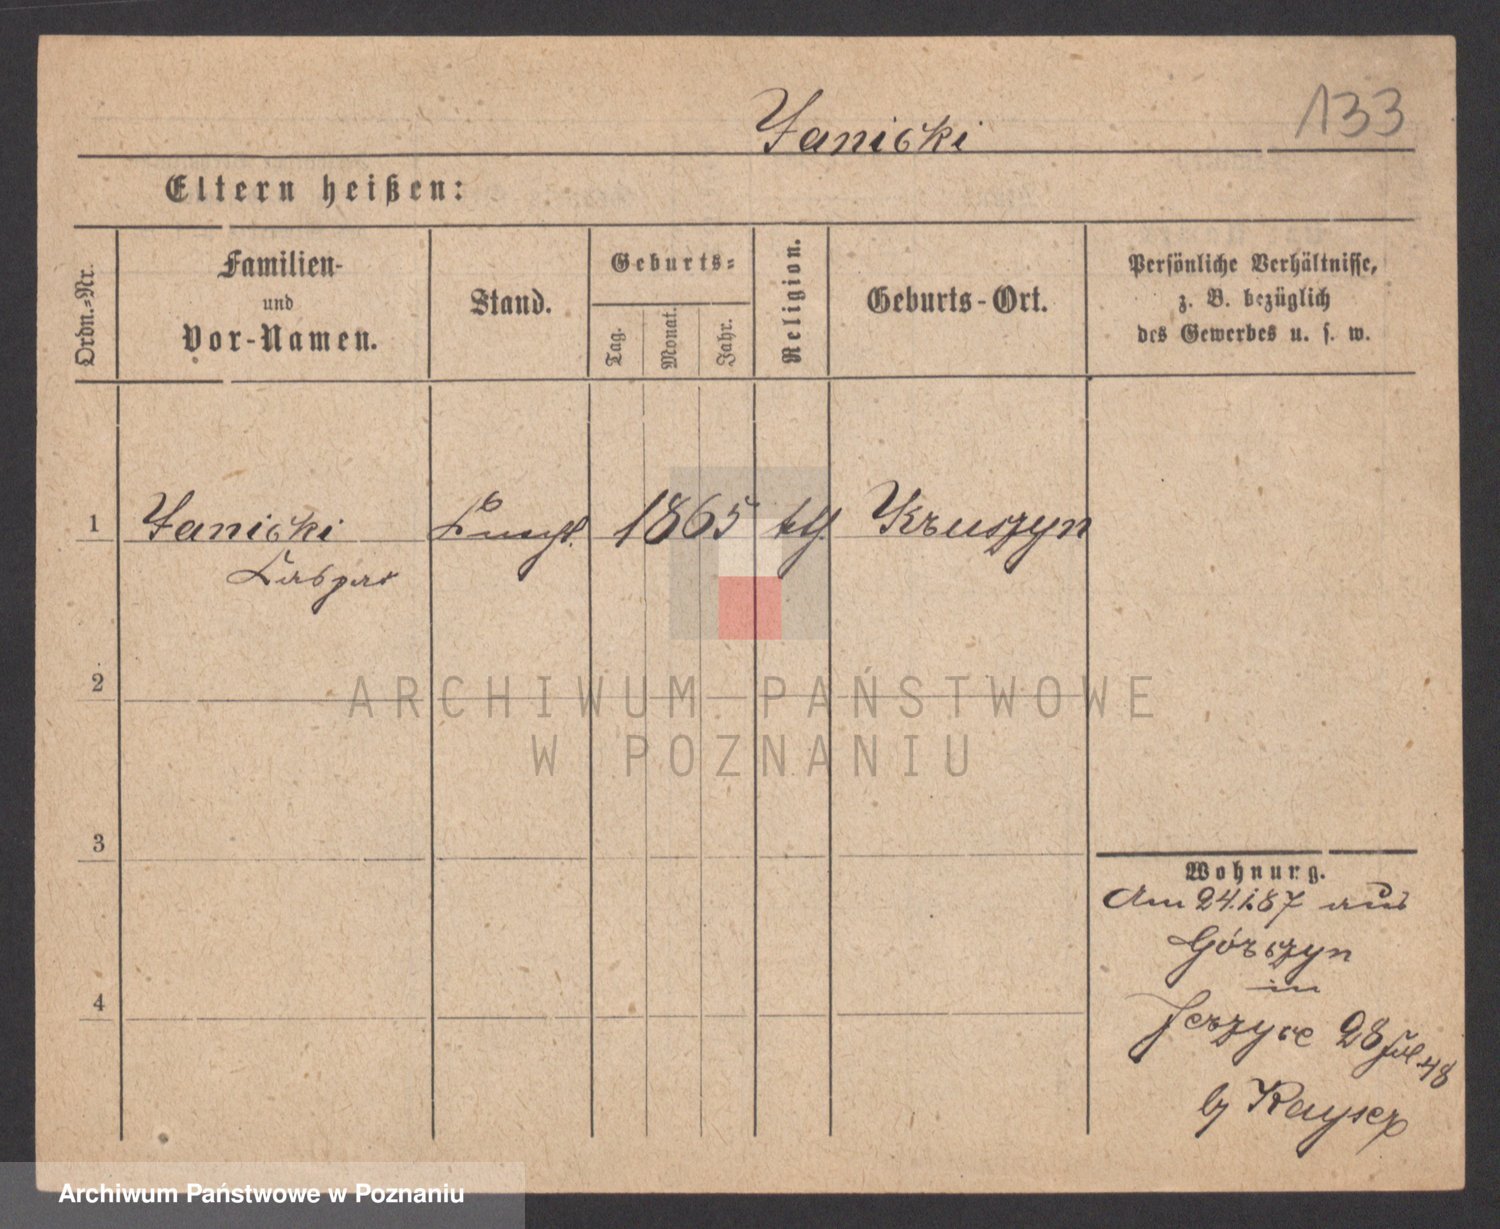 Janicki
133
Eltern heißen:
Ordn.-Nr.
Familien-
und
Vor-Namen.
Stand.
Geburts-
Tag.
Monat.
Jahr.
Religion.
Geburts-Ort.
Persönliche Verhältnisse,
z. B. bezüglich
des Gewerbes u. s. w.
1
Janicki
Caspar
1865
kth.
Kruszyn
2
ARCHIWUM PAŃSTWOWE
W POZNANIU
3
Wohnung.
Am 24.1.87 aus
Górszyn
in
4
Jerzyce 28
by Kayser
Archiwum Państwowe w Poznaniu